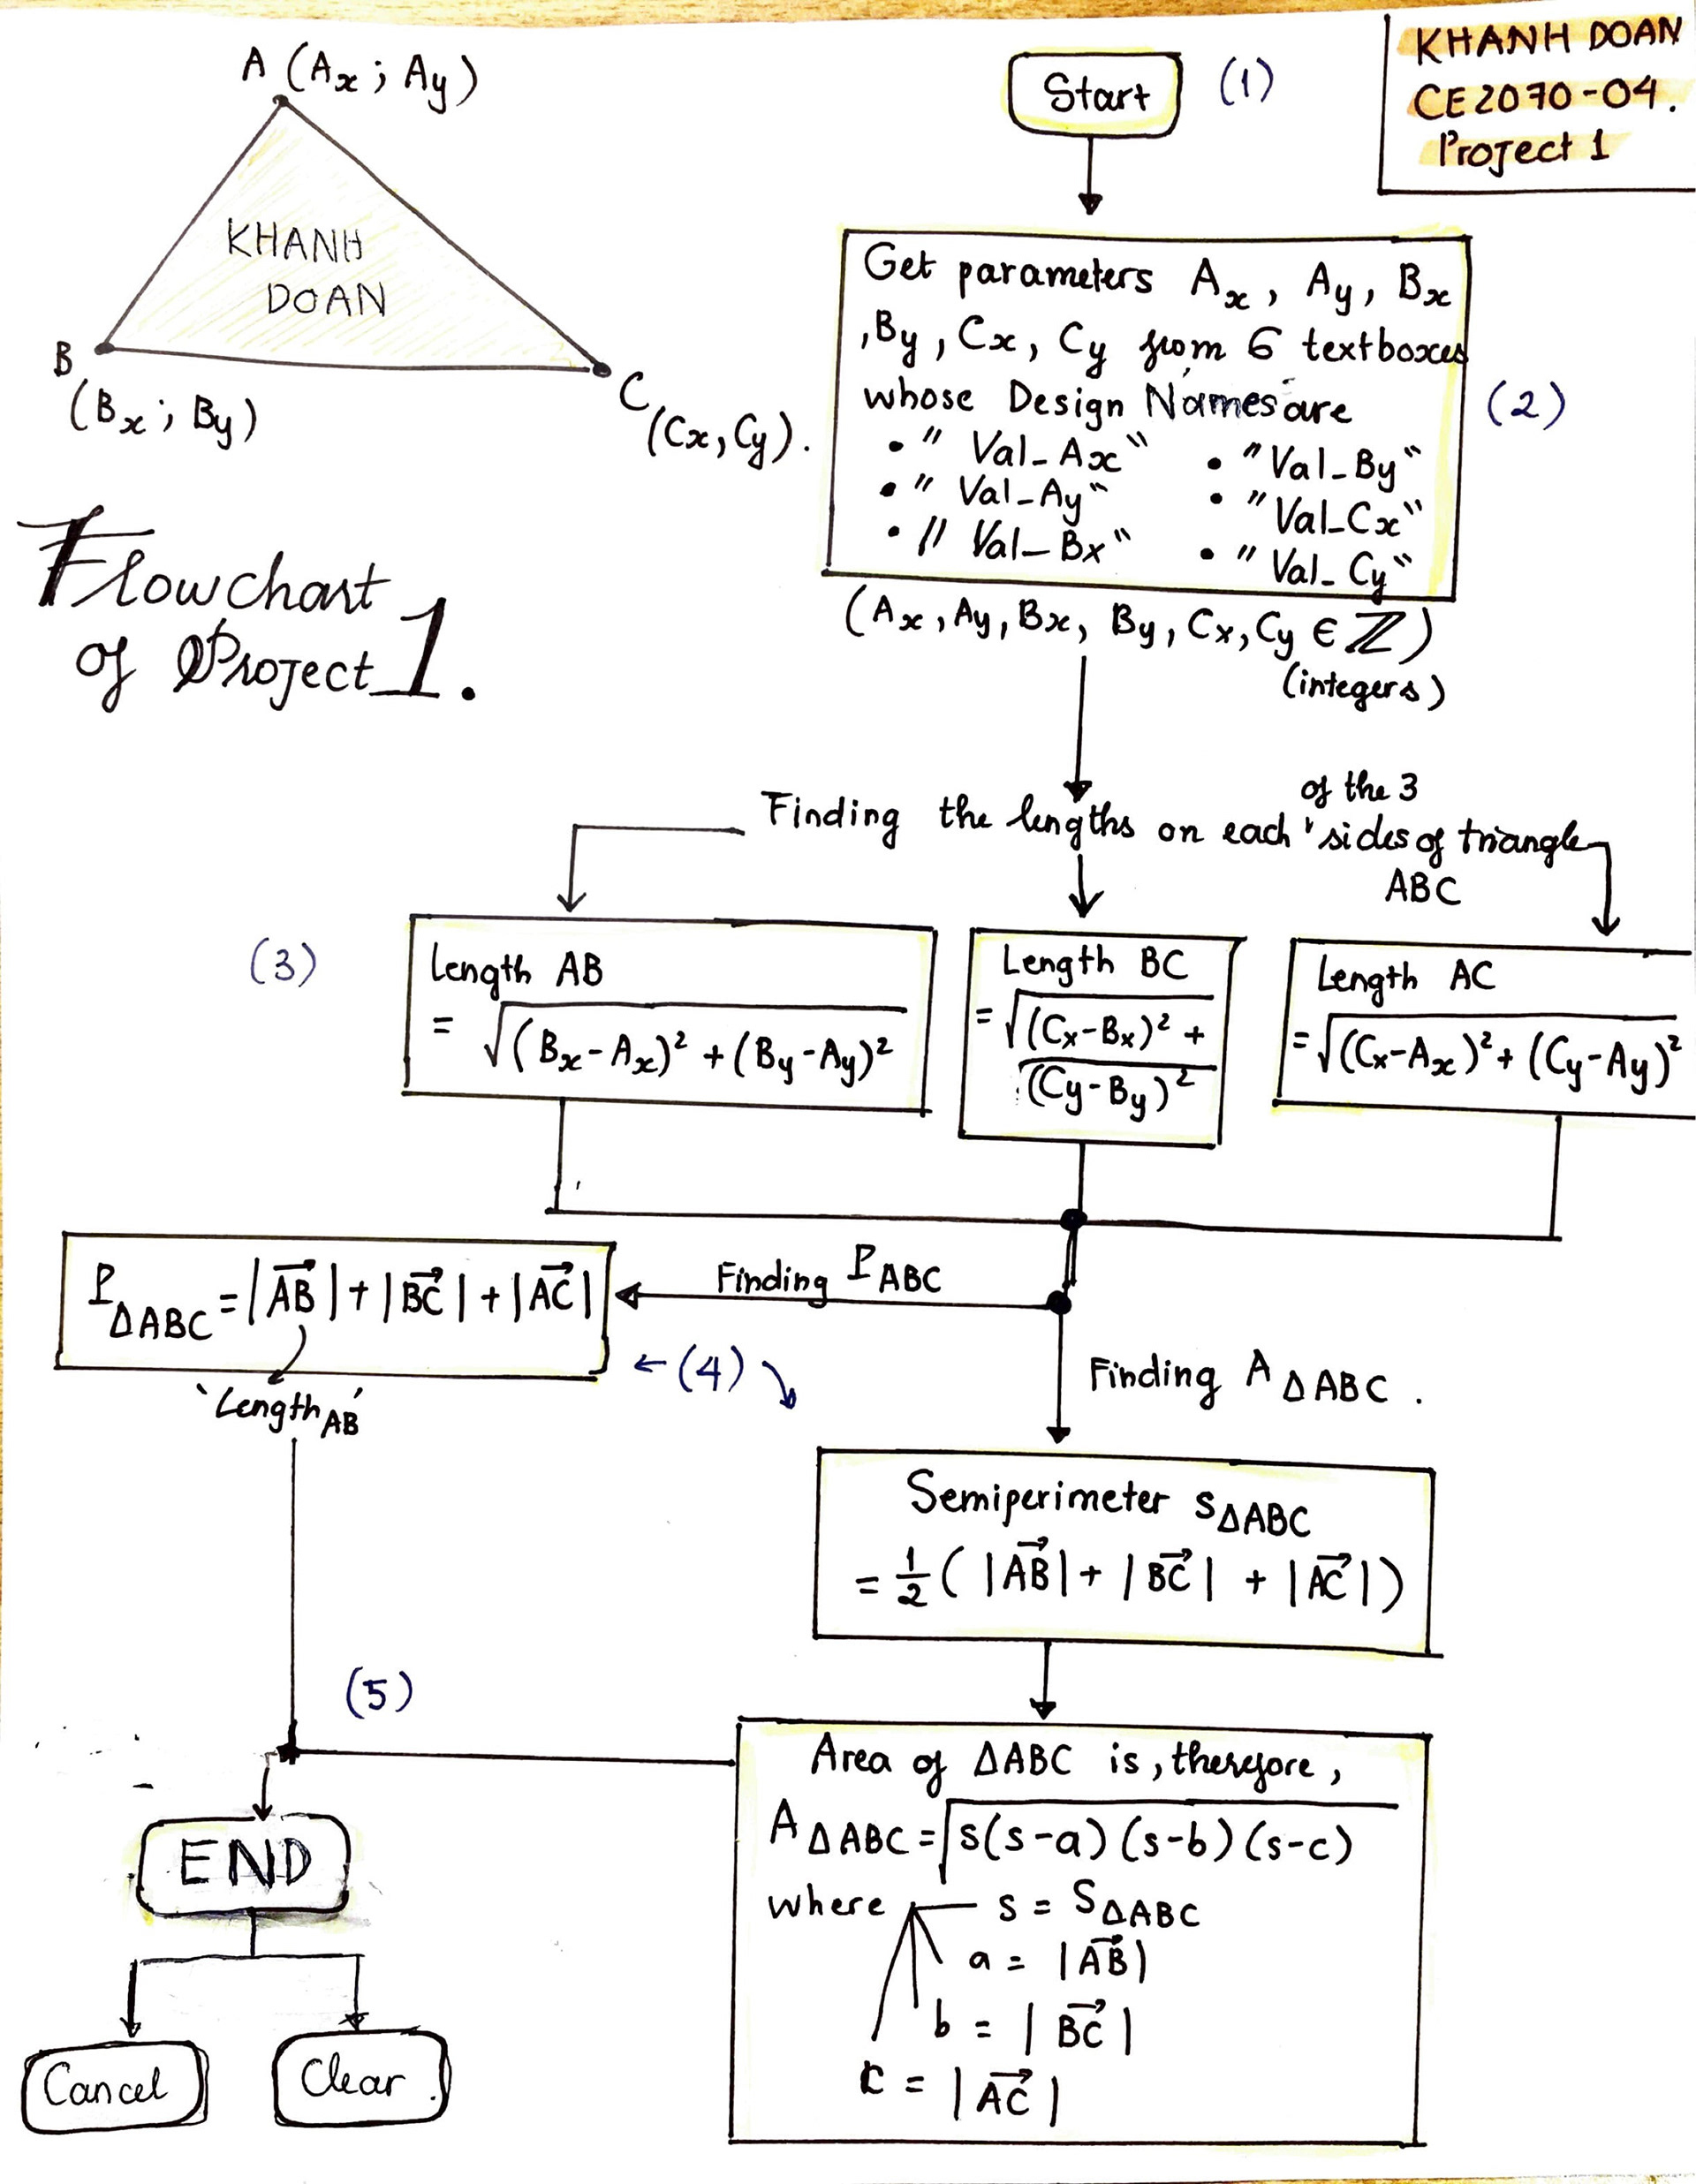 A (Ax ; Ay)
KHANH
DOAN
B
(Bx ; By)
C
(Cx, Cy).
Flowchart
of Project 1.
KHANH DOAN
CE2070-04.
Project 1
Start
(1)
Get parameters Ax, Ay, Bx
, By, Cx, Cy from 6 textboxes
whose Design Names are
• "Val_Ax" • "Val_By"
• "Val_Ay" • "Val_Cx"
• "Val_Bx" • "Val_Cy"
(2)
(Ax, Ay, Bx, By, Cx, Cy ∈ ℤ)
(integers)
Finding the lengths on each of the 3 sides of triangle
ABC
(3)
Length AB
= √((Bx-Ax)² + (By-Ay)²)
Length BC
= √((Cx-Bx)² +
(Cy-By)²)
Length AC
= √((Cx-Ax)² + (Cy-Ay)²)
Finding P ABC
P ΔABC = |AB→| + |BC→| + |AC→|
'Length AB'
← (4) ↘
Finding A ΔABC.
Semiperimeter S ΔABC
= 1/2 ( |AB→| + |BC→| + |AC→| )
(5)
Area of ΔABC is, therefore,
A ΔABC = √(s(s-a)(s-b)(s-c))
where s = S ΔABC
a = |AB→|
b = |BC→|
c = |AC→|
END
Cancel
Clear.